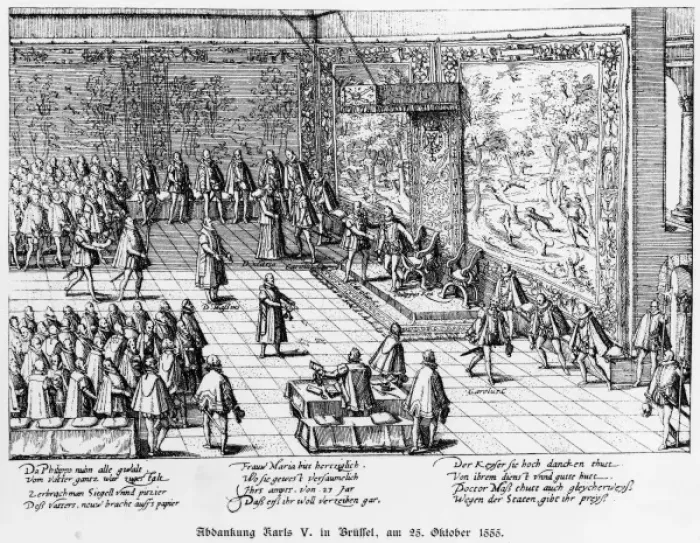 Carolus
Da Philippo nuhn alle gwalt
Vom Vatter gantz war
Zerbrach man Siegell vnnd pitzier
Deß Vatters, neuw bracht auffs papier
Frauw Maria hertziglich.
Wo sie gewest versaumelich
Ihrs ampts, von 27 Jar
Daß ihr woll verzeihen gar.
Der Keyser sie hoch dancken thutt
Von ihrem dienst vnnd gutte hutt
Doctor Maß thutt auch gleycherweyß
Wegen der Staten, gibt ihr preyß
Abdankung Karls V. in Brüssel, am 25. Oktober 1555.